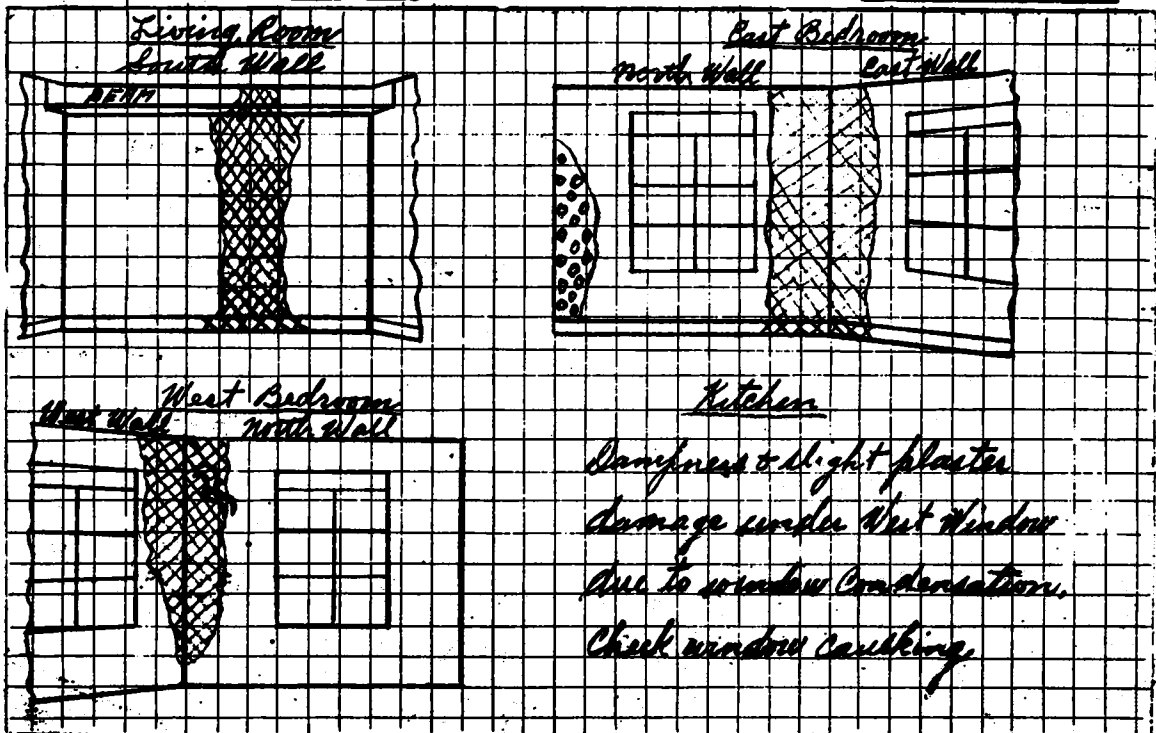 Living Room
South Wall
BEAM
East Bedroom
North Wall
East Wall
West Bedroom
West Wall
North Wall
Kitchen
Dampness & slight plaster
damage under West Window
due to window Condensation.
Check window caulking